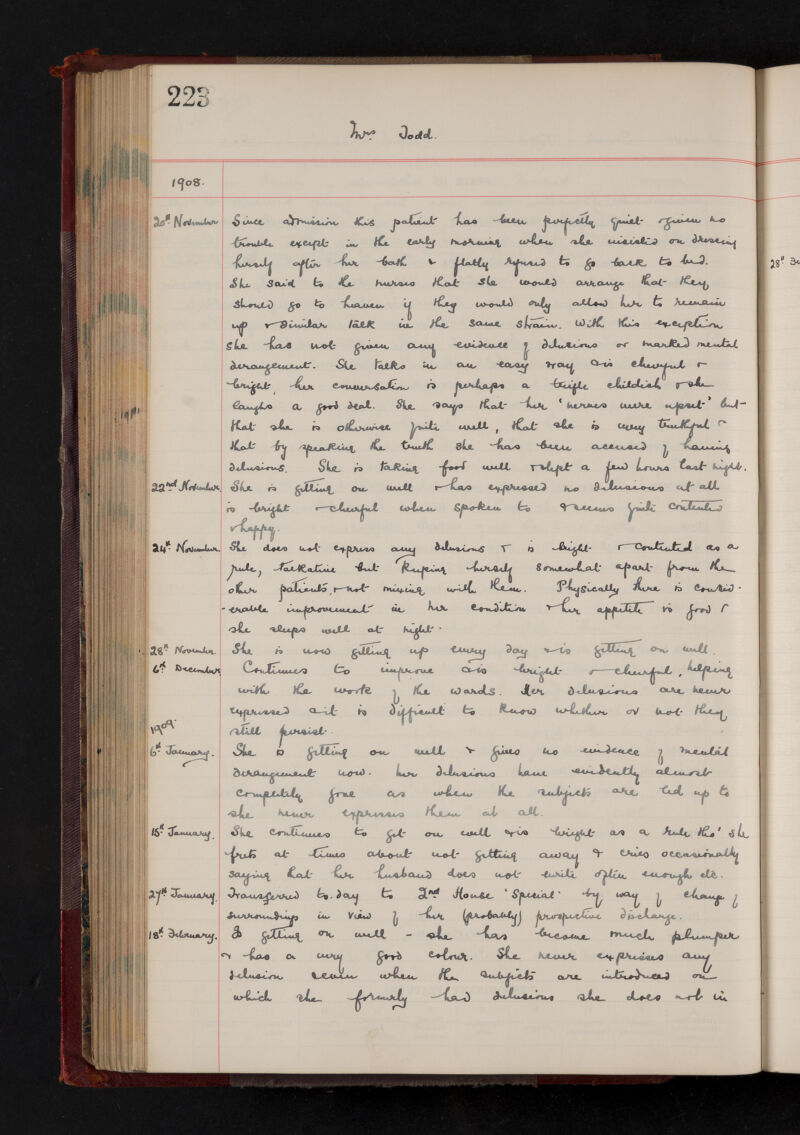 223
Mrs Todd.
1908.
20th November Since admission this patient has been perfectly quiet & given no
trouble except in the early morning when she insisted on dressing
herself after her bath & flatly refused to go back to bed.
She said to the nurses that she would arrange that they
should go to heaven if they would only allow her to remain
up & similar talk in the same strain. With this exception
she has not given any evidence of delusions or marked mental
derangement. She talks in an easy way & is cheerful &
bright, her conversation is perhaps a trifle childish & she
laughs a good deal. She says that her 'nerves were upset' but
that she is otherwise quite well, that she is very truthful &
that by speaking the truth she has been accused of having
delusions. She is taking food well & slept a few hours last night.
22nd November She is getting on well & has expressed no delusions at all
is bright & cheerful when spoken to & seems quite contented
& happy.
24th November She does not express any delusions & is bright & contented as a
rule, talkative but keeping herself somewhat apart from the
other patients, & not mixing with them. Physically there is consid-
-erable improvement in her condition & her appetite is good &
she sleeps well at night.
28th November She is now getting up every day & is getting on well.
6th December Continues to improve & is bright & cheerful, helping
with the work of the wards. Her delusions are never
expressed & it is difficult to know whether or not they
still persist.
1909.
6th January. She is getting on well & gives no evidence of mental
derangement now. her delusions have evidently almost
completely gone as when the subjects are led up to
she never expresses them at all.
15th January. She continues to get on well & is bright as a rule tho' she
frets at times about not getting away & cries occasionally
saying that her husband does not write often enough etc.
27th January. Transferred to-day to 2nd House 'Special' by way of change of
surroundings in view of her (probably) prospective discharge.
18th February. Is getting on well - she has become much plumper
& has a very good colour. She never expresses any
delusion & even when the subjects are introduced on
which she formerly had delusions she does not in
28th